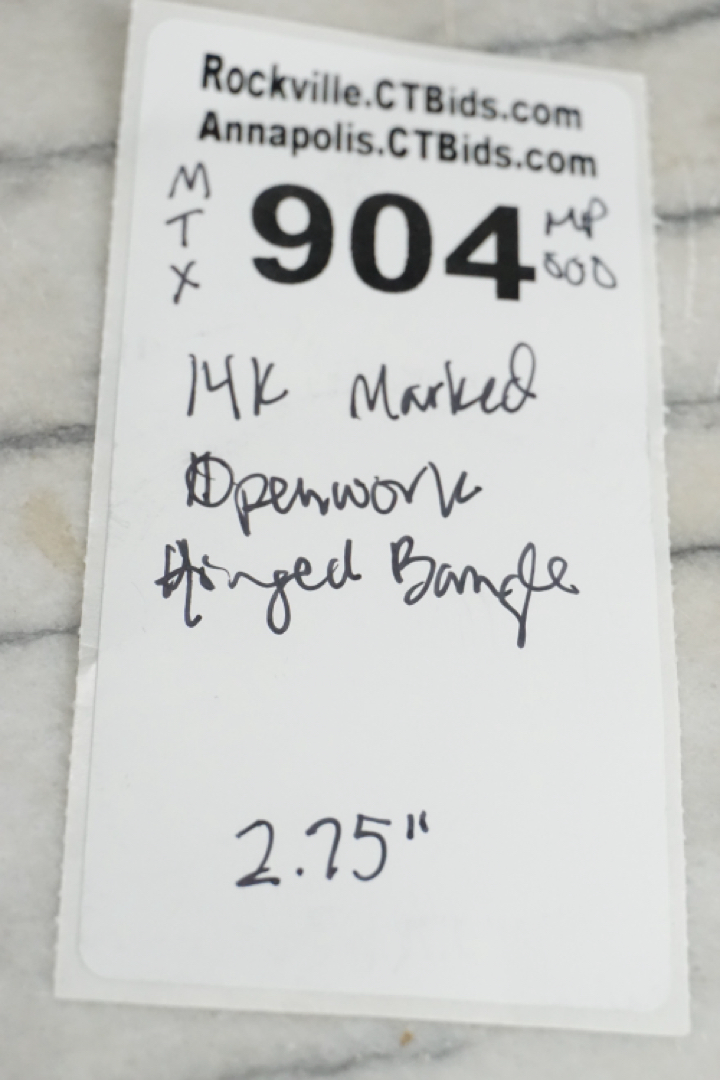 Rockville.CTBids.com
Annapolis.CTBids.com
M
T
X
904
MP
500
14K Marked
Openwork
Hinged Bangle
2.75"